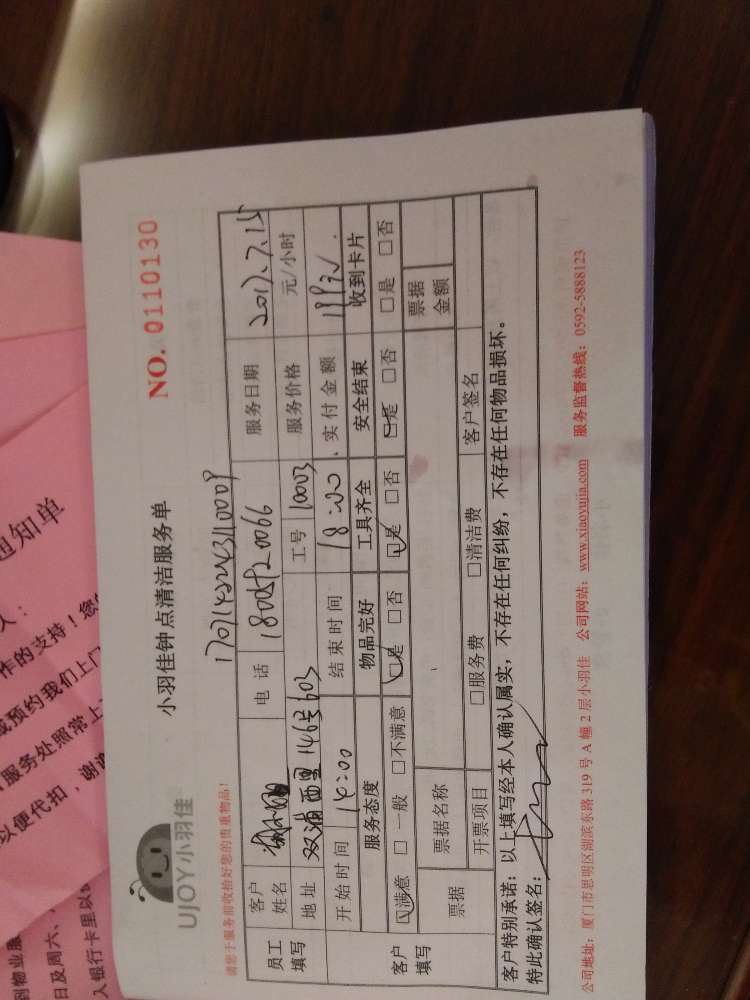 UJOY小羽佳
小羽佳钟点清洁服务单
NO. 0110130
请您于服务前收拾好您的贵重物品!
员工填写
客户姓名
电话
服务日期 2017.7.15
地址 双浦西里146号603
工号 10003
服务价格 元/小时
开始时间 14:00
结束时间 18:00
实付金额
客户填写
服务态度 物品完好 工具齐全 安全结束 收到卡片
☑满意 □一般 □不满意 ☑是 □否 ☑是 □否 ☑是 □否 □是 □否
票据 票据名称 票据金额
开票项目 □服务费 □清洁费 客户签名
客户特别承诺:以上填写经本人确认属实,不存在任何纠纷,不存在任何物品损坏。
特此确认签名:
公司地址:厦门市思明区湖滨东路319号A幢2层小羽佳 公司网站:www.xiaoyujia.com 服务监督热线:0592-5888123
通知单
人:
作的支持!您
预约我们上门
服务处照常上
以便代扣,谢谢
到物业服
日及周六、
入银行卡里以